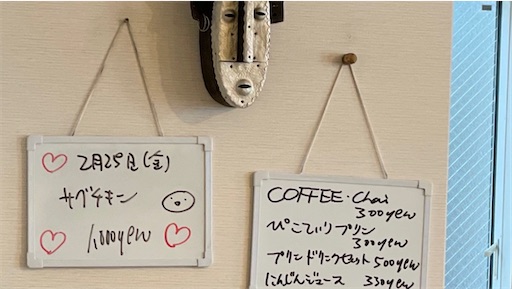 2月25日(金)
サグチキン
1,000yen
COFFEE・Chai
300yen
ぴこてぃりプリン
300yen
プリンドリンクセット 500yen
にんじんジュース 330yen